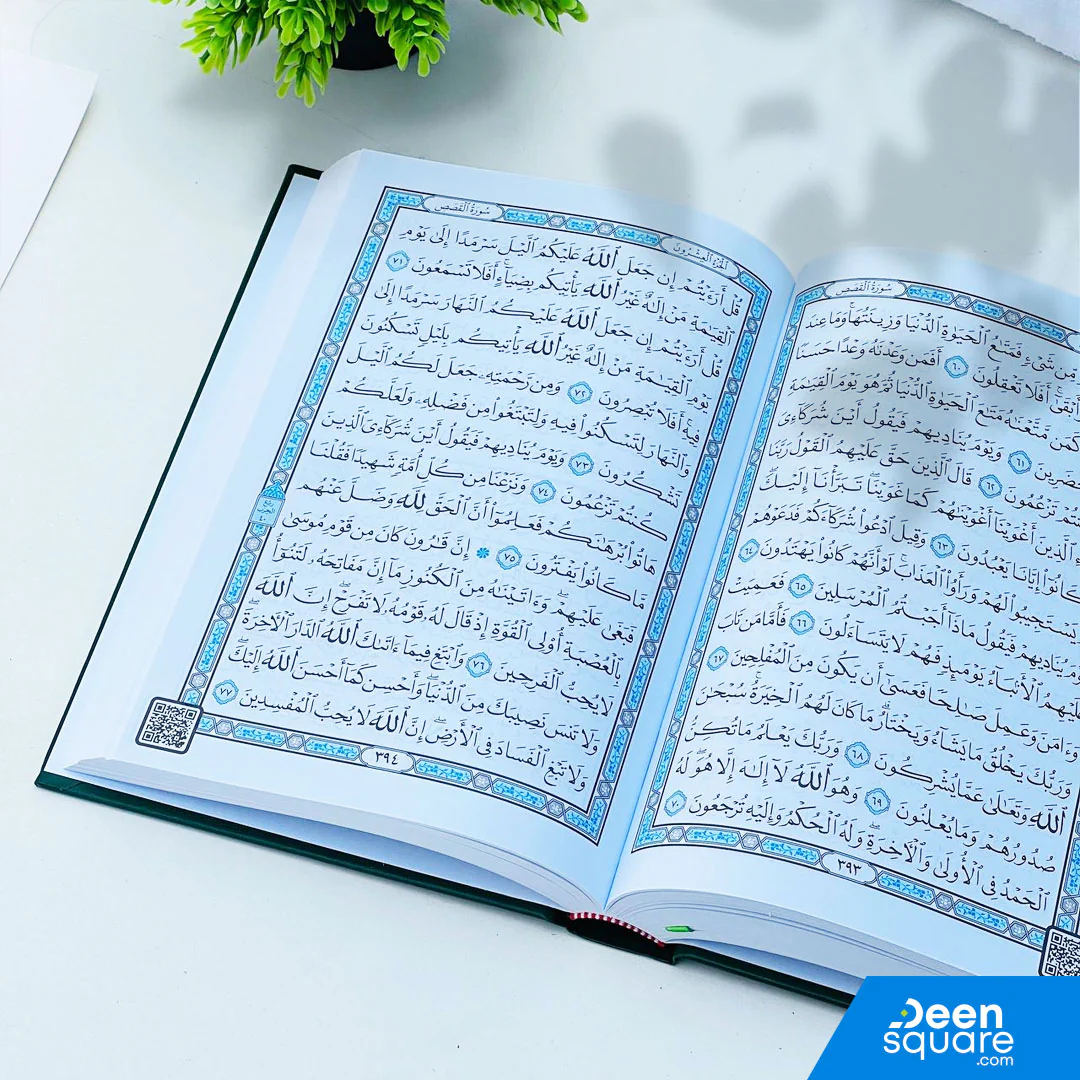 سُورَةُ القَصَصِ
مِّن شَيْءٍ فَمَتَٰعُ ٱلْحَيَوٰةِ ٱلدُّنْيَا وَزِينَتُهَاۚ وَمَا عِندَ
أَفَلَا تَعْقِلُونَ ٦٠ أَفَمَن وَعَدْنَٰهُ وَعْدًا حَسَنًا
كَمَن مَّتَّعْنَٰهُ مَتَٰعَ ٱلْحَيَوٰةِ ٱلدُّنْيَا ثُمَّ هُوَ يَوْمَ ٱلْقِيَٰمَةِ
٦١ وَيَوْمَ يُنَادِيهِمْ فَيَقُولُ أَيْنَ شُرَكَآءِىَ
تَزْعُمُونَ ٦٢ قَالَ ٱلَّذِينَ حَقَّ عَلَيْهِمُ ٱلْقَوْلُ رَبَّنَا
ٱلَّذِينَ أَغْوَيْنَآ أَغْوَيْنَٰهُمْ كَمَا غَوَيْنَاۖ تَبَرَّأْنَآ إِلَيْكَۖ
كَانُوٓا۟ إِيَّانَا يَعْبُدُونَ ٦٣ وَقِيلَ ٱدْعُوا۟ شُرَكَآءَكُمْ فَدَعَوْهُمْ
يَسْتَجِيبُوا۟ لَهُمْ وَرَأَوُا۟ ٱلْعَذَابَۚ لَوْ أَنَّهُمْ كَانُوا۟ يَهْتَدُونَ ٦٤
يُنَادِيهِمْ فَيَقُولُ مَاذَآ أَجَبْتُمُ ٱلْمُرْسَلِينَ ٦٥ فَعَمِيَتْ
ٱلْأَنۢبَآءُ يَوْمَئِذٍ فَهُمْ لَا يَتَسَآءَلُونَ ٦٦ فَأَمَّا مَن تَابَ
وَءَامَنَ وَعَمِلَ صَٰلِحًا فَعَسَىٰٓ أَن يَكُونَ مِنَ ٱلْمُفْلِحِينَ ٦٧
وَرَبُّكَ يَخْلُقُ مَا يَشَآءُ وَيَخْتَارُۗ مَا كَانَ لَهُمُ ٱلْخِيَرَةُۚ سُبْحَٰنَ
ٱللَّهِ وَتَعَٰلَىٰ عَمَّا يُشْرِكُونَ ٦٨ وَرَبُّكَ يَعْلَمُ مَا تُكِنُّ
صُدُورُهُمْ وَمَا يُعْلِنُونَ ٦٩ وَهُوَ ٱللَّهُ لَآ إِلَٰهَ إِلَّا هُوَۖ لَهُ
ٱلْحَمْدُ فِى ٱلْأُولَىٰ وَٱلْءَاخِرَةِۖ وَلَهُ ٱلْحُكْمُ وَإِلَيْهِ تُرْجَعُونَ ٧٠
٣٩٣
الجُزْءُ العِشْرُونَ
سُورَةُ القَصَصِ
قُلْ أَرَءَيْتُمْ إِن جَعَلَ ٱللَّهُ عَلَيْكُمُ ٱلَّيْلَ سَرْمَدًا إِلَىٰ يَوْمِ
ٱلْقِيَٰمَةِ مَنْ إِلَٰهٌ غَيْرُ ٱللَّهِ يَأْتِيكُم بِضِيَآءٍۖ أَفَلَا تَسْمَعُونَ ٧١
قُلْ أَرَءَيْتُمْ إِن جَعَلَ ٱللَّهُ عَلَيْكُمُ ٱلنَّهَارَ سَرْمَدًا إِلَىٰ
يَوْمِ ٱلْقِيَٰمَةِ مَنْ إِلَٰهٌ غَيْرُ ٱللَّهِ يَأْتِيكُم بِلَيْلٍ تَسْكُنُونَ
فِيهِۚ أَفَلَا تُبْصِرُونَ ٧٢ وَمِن رَّحْمَتِهِۦ جَعَلَ لَكُمُ ٱلَّيْلَ
وَٱلنَّهَارَ لِتَسْكُنُوا۟ فِيهِ وَلِتَبْتَغُوا۟ مِن فَضْلِهِۦ وَلَعَلَّكُمْ
تَشْكُرُونَ ٧٣ وَيَوْمَ يُنَادِيهِمْ فَيَقُولُ أَيْنَ شُرَكَآءِىَ ٱلَّذِينَ
كُنتُمْ تَزْعُمُونَ ٧٤ وَنَزَعْنَا مِن كُلِّ أُمَّةٍ شَهِيدًا فَقُلْنَا
هَاتُوا۟ بُرْهَٰنَكُمْ فَعَلِمُوٓا۟ أَنَّ ٱلْحَقَّ لِلَّهِ وَضَلَّ عَنْهُم
مَّا كَانُوا۟ يَفْتَرُونَ ٧٥ ۞ إِنَّ قَٰرُونَ كَانَ مِن قَوْمِ مُوسَىٰ
فَبَغَىٰ عَلَيْهِمْۖ وَءَاتَيْنَٰهُ مِنَ ٱلْكُنُوزِ مَآ إِنَّ مَفَاتِحَهُۥ لَتَنُوٓأُ
بِٱلْعُصْبَةِ أُو۟لِى ٱلْقُوَّةِ إِذْ قَالَ لَهُۥ قَوْمُهُۥ لَا تَفْرَحْۖ إِنَّ ٱللَّهَ
لَا يُحِبُّ ٱلْفَرِحِينَ ٧٦ وَٱبْتَغِ فِيمَآ ءَاتَىٰكَ ٱللَّهُ ٱلدَّارَ ٱلْءَاخِرَةَۖ
وَلَا تَنسَ نَصِيبَكَ مِنَ ٱلدُّنْيَاۖ وَأَحْسِن كَمَآ أَحْسَنَ ٱللَّهُ إِلَيْكَۖ
وَلَا تَبْغِ ٱلْفَسَادَ فِى ٱلْأَرْضِۖ إِنَّ ٱللَّهَ لَا يُحِبُّ ٱلْمُفْسِدِينَ ٧٧
ربع
الحزب
٤٠
٣٩٤
Deen
square
.com